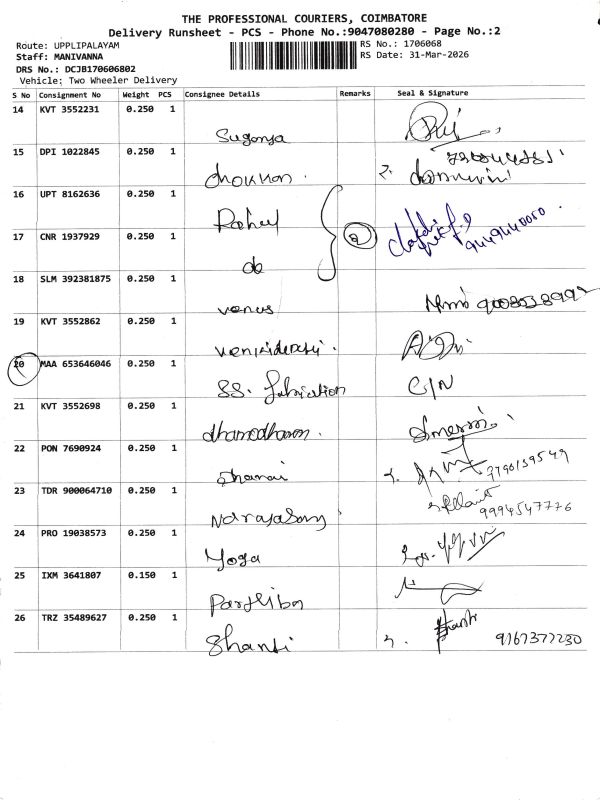 THE PROFESSIONAL COURIERS, COIMBATORE
Delivery Runsheet - PCS - Phone No.:9047080280 - Page No.:2
Route: UPPLIPALAYAM
RS No.: 1706068
Staff: MANIVANNA
RS Date: 31-Mar-2026
DRS No.: DCJB170606802
Vehicle: Two Wheeler Delivery
S No Consignment No Weight PCS Consignee Details Remarks Seal & Signature
14 KVT 3552231 0.250 1
Suganya
15 DPI 1022845 0.250 1
chokkan.
16 UPT 8162636 0.250 1
Rahul
17 CNR 1937929 0.250 1
9449440050
do
18 SLM 392381875 0.250 1
venus
19 KVT 3552862 0.250 1
20 MAA 653646046 0.250 1
SS. fabrication C/N
21 KVT 3552698 0.250 1
dhamodharan.
22 PON 7690924 0.250 1
9790139549
23 TDR 900064710 0.250 1
9994547776
Natarajan
24 PRO 19038573 0.250 1
Yoga
25 IXM 3641807 0.150 1
Parthiban
26 TRZ 35489627 0.250 1
Shanti 9167377230